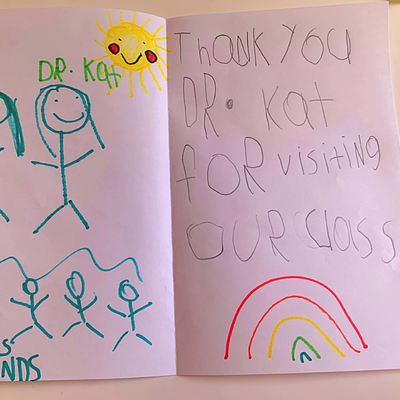 DR. Kat
s
NDS
ThANK YOU
DR. Kat
fOR visiting
OUR Class